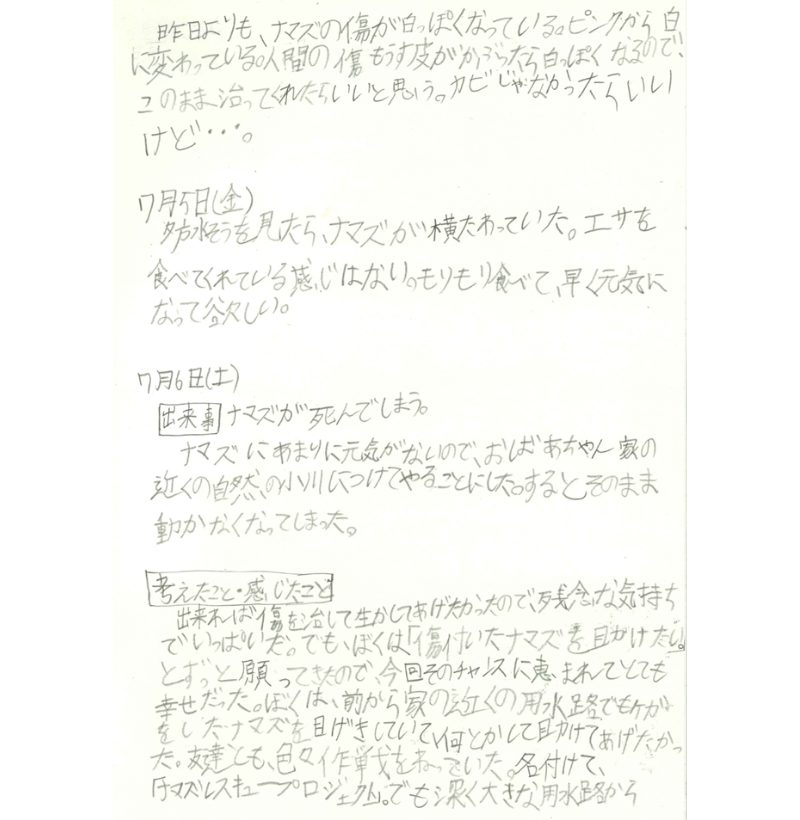 昨日よりも、ナマズの傷が白っぽくなっている。ピンクから白
に変わっている。人間の傷もうす皮がかぶったら白っぽくなるので、
このまま治ってくれたらいいと思う。カビじゃなかったらいい
けど・・・。
7月5日(金)
夕方水そうを見たら、ナマズが横たわっていた。エサを
食べてくれている感じはない。もりもり食べて、早く元気に
なって欲しい。
7月6日(土)
出来事 ナマズが死んでしまう。
ナマズにあまりに元気がないので、おばあちゃん家の
近くの自然の小川につけてやることにした。するとそのまま
動かなくなってしまった。
考えたこと・感じたこと
出来れば傷を治して生かしてあげたかったので、残念な気持ち
でいっぱいだ。でも、ぼくは「傷付いたナマズを助けたい。」
とずっと願ってきたので、今回そのチャンスに恵まれてとても
幸せだった。ぼくは、前から家の近くの用水路でもケガ
をしたナマズを目げきしていて、何とかして助けてあげたかっ
た。友達とも、色々作戦をねっていた。名付けて、
「ナマズレスキュープロジェクト」。でも深く大きな用水路から